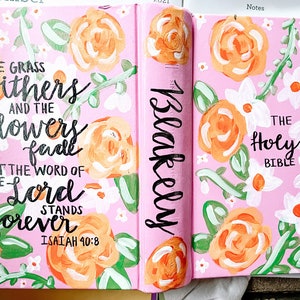 Notes
THE GRASS
withers
AND THE
flowers
fade
BUT THE WORD OF
THE
Lord
STANDS
forever
ISAIAH 40:8
Blakely
THE
Holy
BIBLE